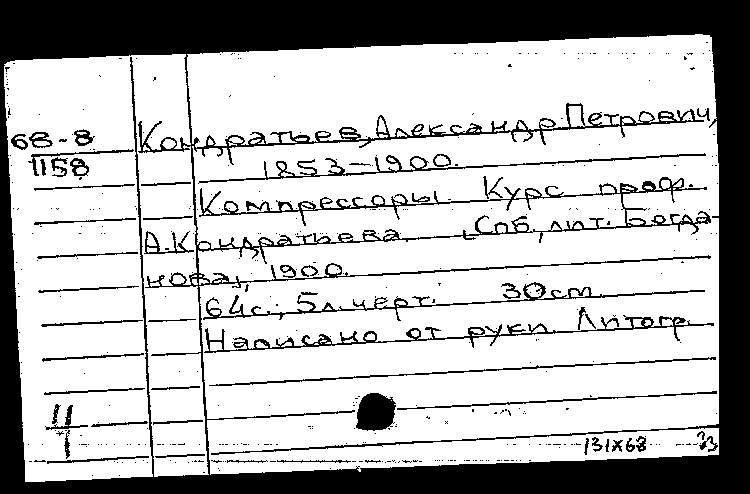 68-8
1158
Кондратьев, Александр Петрович,
1853-1900.
Компрессоры. Курс проф.
А. Кондратьева. [Спб., лит. Богда-
нова], 1900.
64 с.; 5 л. черт. 30 см.
Написано от руки. Литогр.
131X68